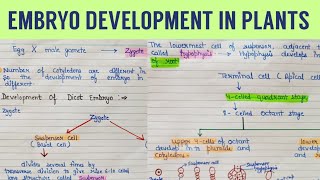 EMBRYO DEVELOPMENT IN PLANTS
Egg X male gamete → Zygote
Number of cotyledons are different in
so the development of embryo in
different
Development of Dicot Embryo :→
Zygote
Zygote
Suspensor Cell
(Basal cell)
divides several times by
transverse division to give rise 6-10 cells
long structure called Suspensor
The lowermost cell of suspensor, adjacent to
called hypophysis → Hypophysis develops in
of root
Terminal cell (Apical cell
4-celled quadrant stage
8-celled octant stage
upper 4-cells of octant
develop in to plumule and
Cotyledons